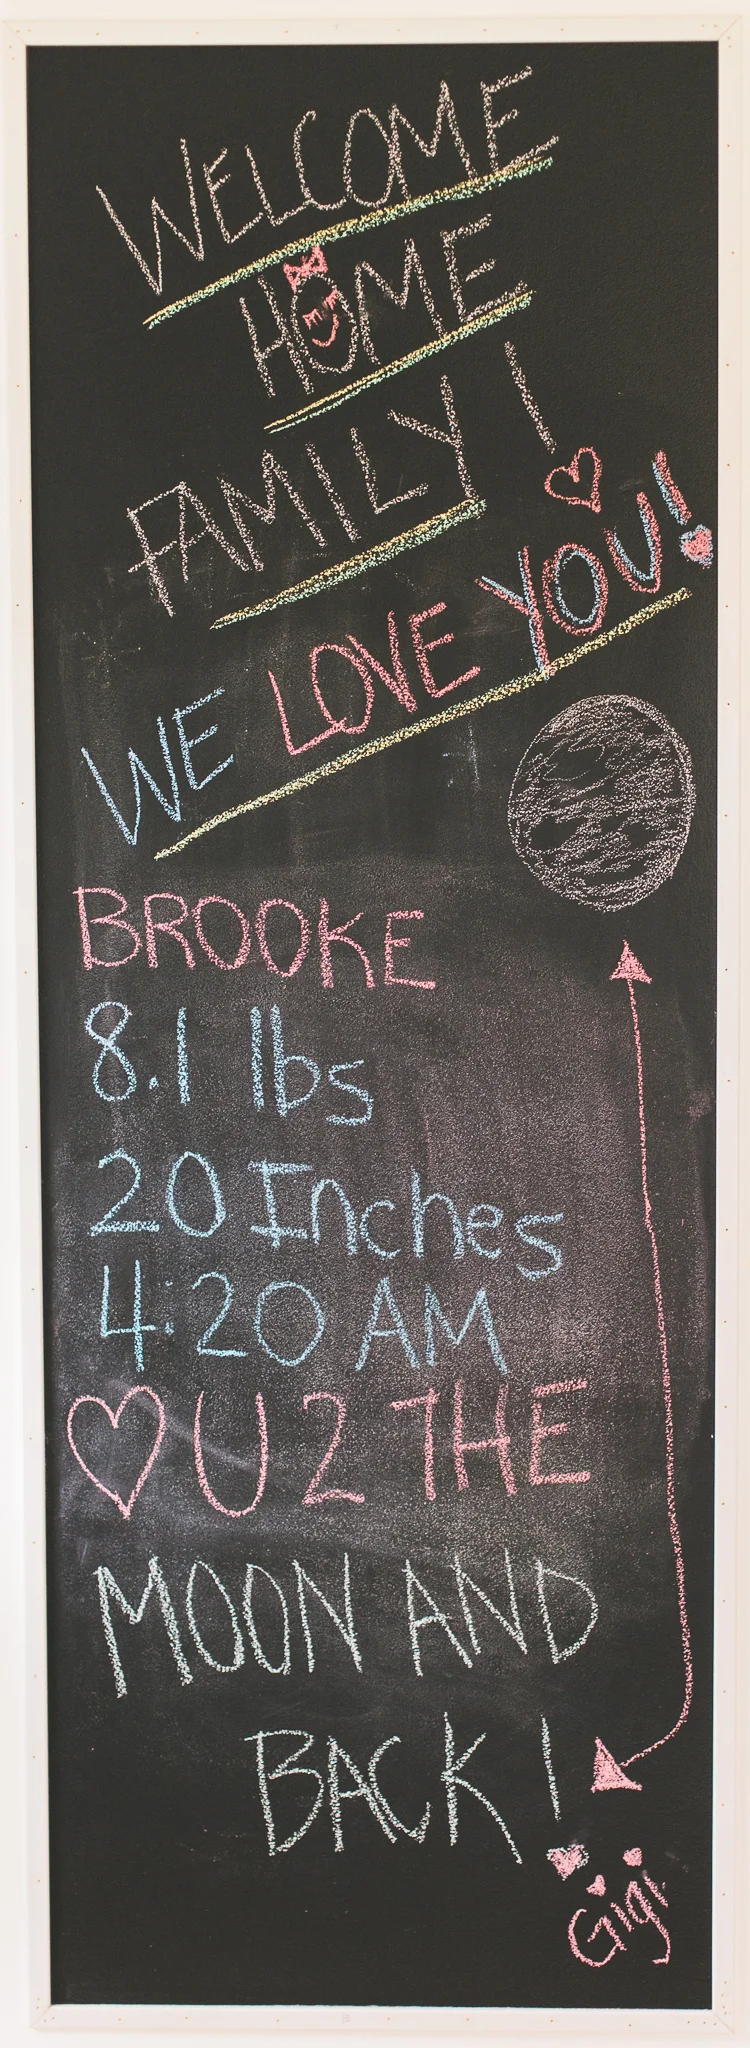 WELCOME
HOME
FAMILY!
WE LOVE YOU!
BROOKE
8.1 lbs
20 Inches
4:20 AM
♡ U 2 THE
MOON AND
BACK!
Gigi